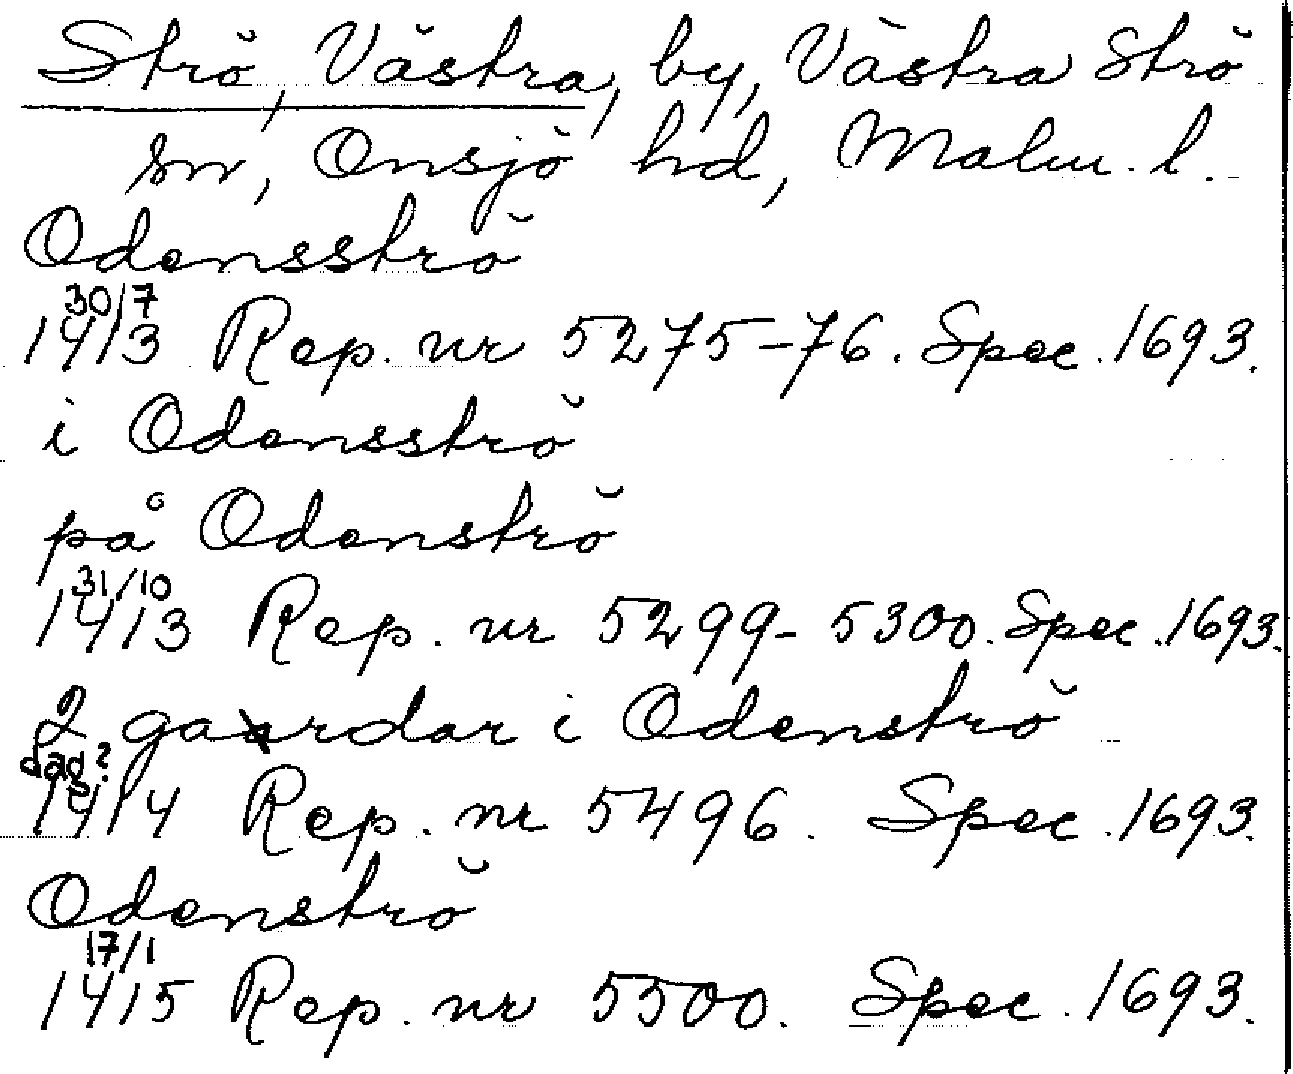 Strö, Västra, by, Västra Strö
sn, Onsjö hd, Malm. l.
Odensströ
30/7
1413 Rep. nr 5275-76. Spec. 1693.
i Odensströ
på Odenströ
31/10
1413 Rep. nr 5299-5300. Spec. 1693.
2 gaardar i Odenströ
dag?
1414 Rep. nr 5496. Spec. 1693.
Odenströ
17/1
1415 Rep. nr 5500. Spec. 1693.